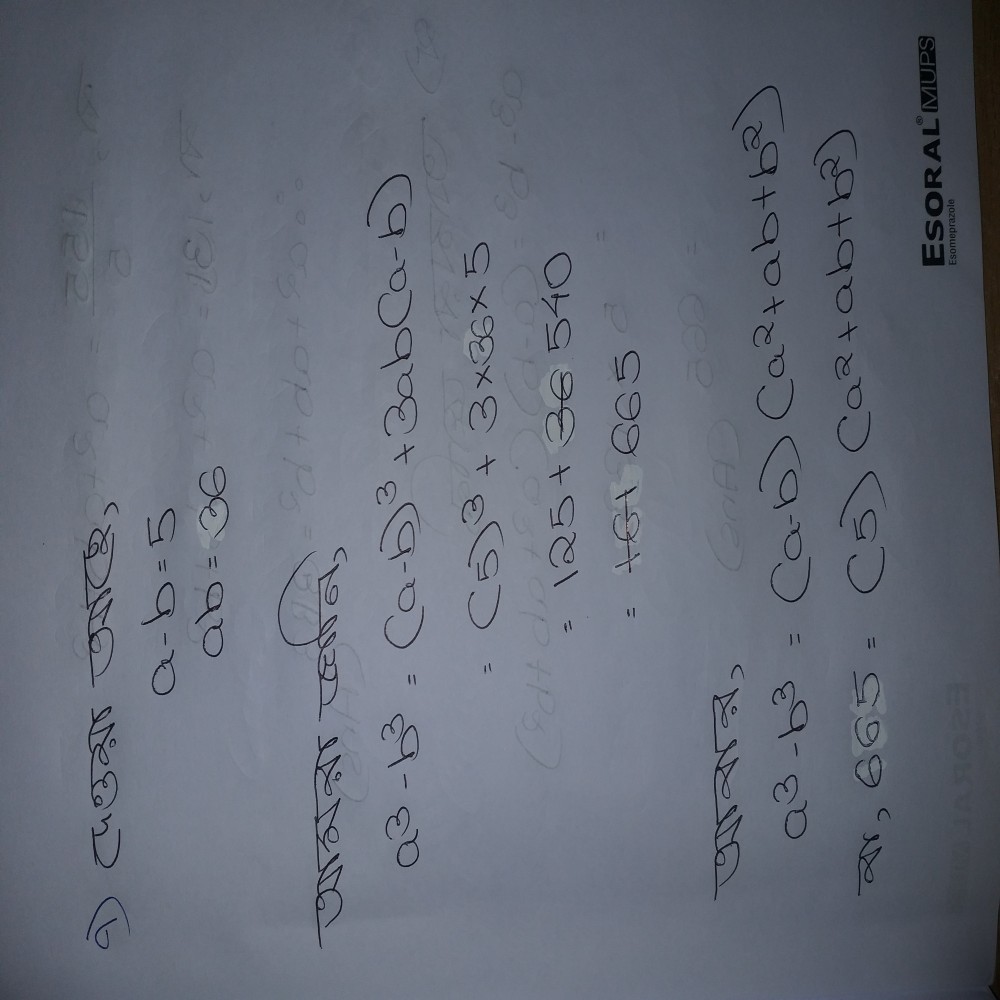 ৭) দেওয়া আছে,
a-b=5
ab=36
আমরা জানি,
a3-b3 = (a-b)3+3ab(a-b)
= (5)3+3×36×5
= 125+36 540
= 161 665
আবার,
a3-b3 = (a-b)(a2+ab+b2)
বা, 665= (5)(a2+ab+b2)
ESORAL® MUPS
Esomeprazole